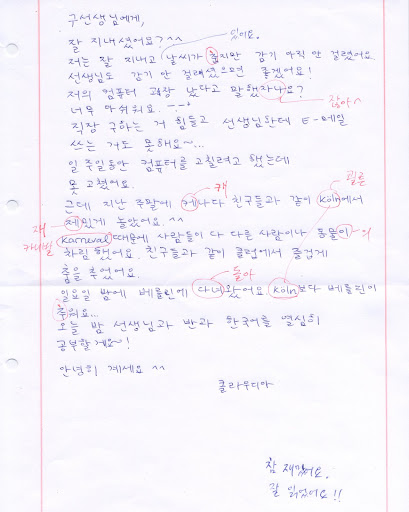 구선생님에게,
있어요.
잘 지내셨어요? ^^
저는 잘 지내고 날씨가 춥지만 감기 아직 안 걸렸어요.
선생님도 감기 안 걸리셨으면 좋겠어요!
저의 컴퓨터 고장 났다고 말했자나요?
잖아
너무 아쉬워요.
직장 구하는 거 힘들고 선생님한테 E-메일
쓰는 거도 못해요~...
일 주일동안 컴퓨터를 고칠려고 했는데
못 고쳤어요.
캐
쾰른
근데 지난 주말에 케나다 친구들과 같이 Köln에서
재
제밌게 놀았어요. ^^
카니발
Karneval 때문에 사람들이 다 다른 사람이나 동물이
의
차림 했어요. 친구들과 같이 클럽에서 즐겁게
춤을 추었어요.
돌아
일요일 밤에 베를린에 다녀왔어요 Köln보다 베를린이
추워요...
오늘 밤 선생님과 반과 한국어를 열심히
공부할게요~!
안녕히 계세요 ^^
클라우디아
참 재밌어요.
잘 읽었어요!!